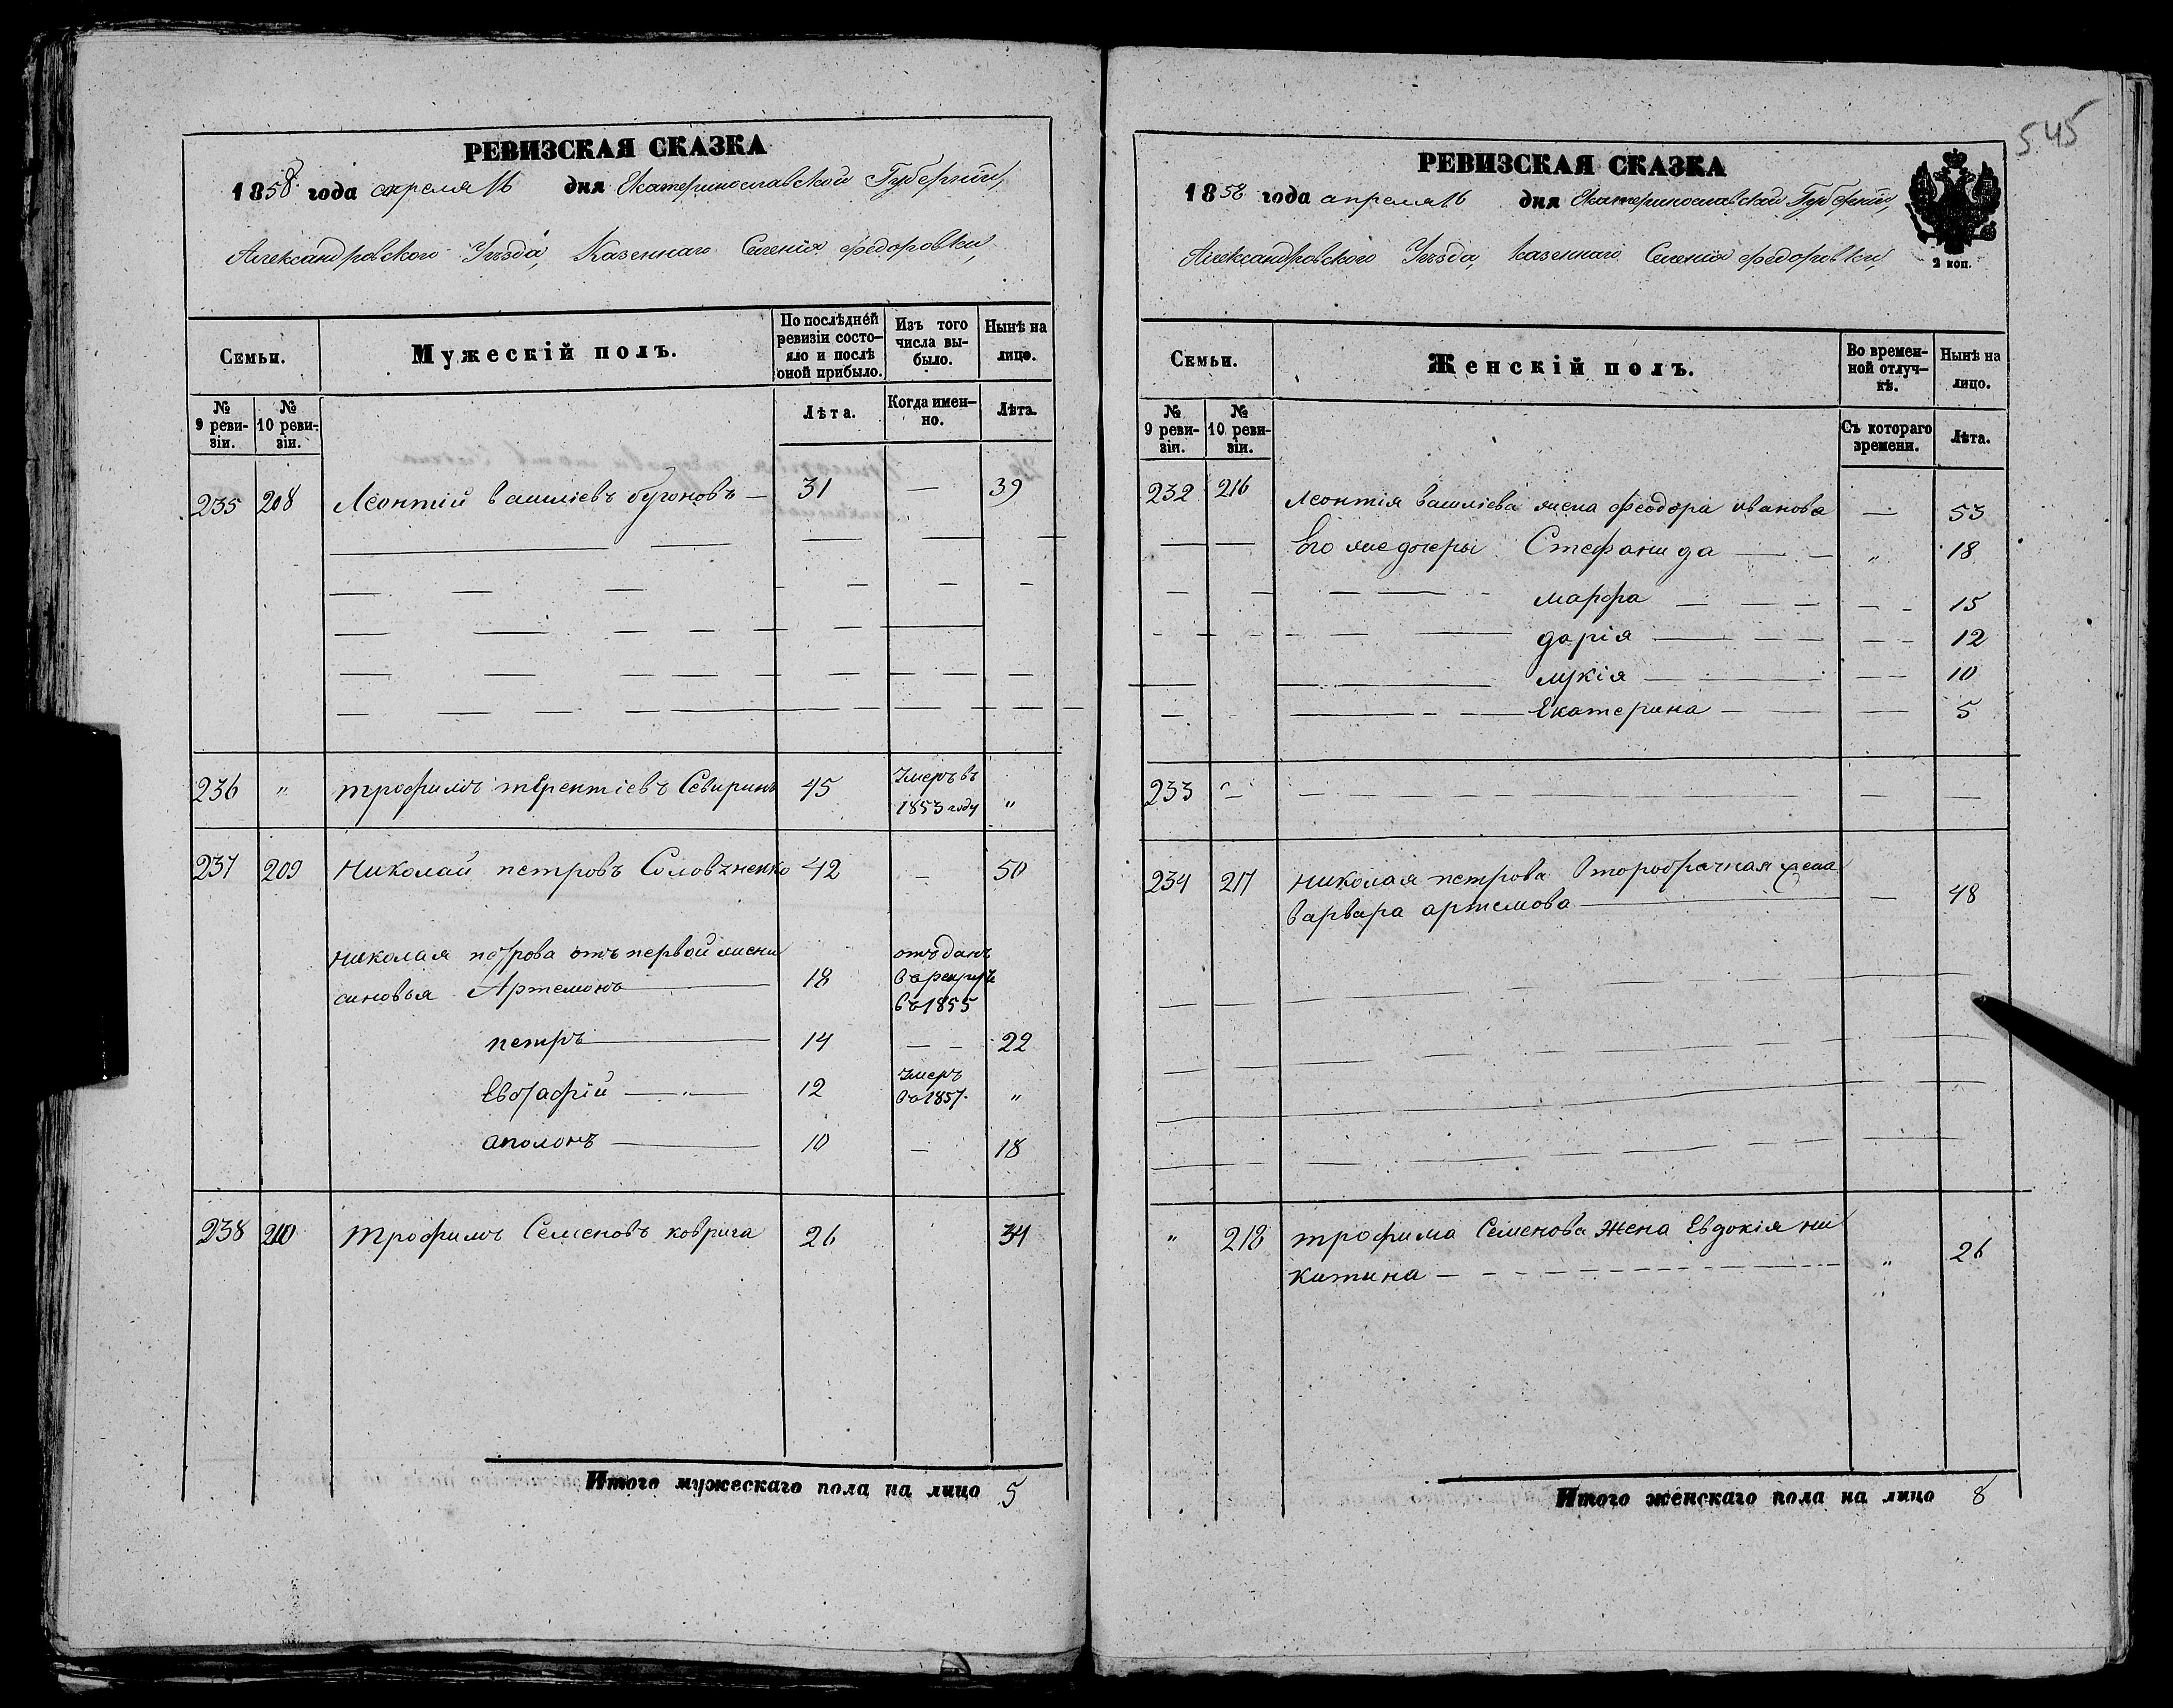 РЕВИЗСКАЯ СКАЗКА
1858 года апреля 16 дня Екатеринославской Губернии,
Александровского Уѣзда, Казеннаго Селенія Федоровки,
Семьи.
Мужескій полъ.
По послѣдней ревизіи состо-
яло и послѣ
оной прибыло.
Изъ того
числа вы-
было.
Нынѣ на
лицо.
№
9 реви-
зіи.
№
10 реви-
зіи.
Лѣта.
Когда имен-
но.
Лѣта.
235 208 Леонтій Василіевъ — 31 — 39
236 " трофимъ терентіевъ Севиринъ 45 Умеръ въ
1853 году "
237 209 Николай петровъ 42 — 50
Николая петрова отъ первой жени
синовья Артемонъ 18 отъданъ
в рекруты
въ 1855
петръ 14 — — 22
Евстафій — " — 12 Умеръ
въ 1857. "
аполонъ 10 — 18
238 210 Трофимъ Семеновъ коврига 26 34
Итого мужескаго пола на лицо 5
545
РЕВИЗСКАЯ СКАЗКА
1858 года апреля 16 дня Екатеринославской Губерніи,
Александровского Уѣзда, Казеннаго Селенія Федоровки,
2 коп.
Семьи.
Женскій полъ.
Во времен-
ной отлуч-
кѣ.
Нынѣ на
лицо.
№
9 реви-
зіи.
№
10 реви-
зіи.
Съ котораго
времени.
Лѣта.
232 216 Леонтія Василіева жена Феодора иванова — 53
Его же дочеры Стефанида — " 18
марфа — 15
дарія — 12
лукія — 10
Екатерина — 5
233 " — — —
234 217 Николая петрова Второбрачная жена
варвара артемова — 48
" 218 трофима Семенова Жена Евдокія ни
китина — " 26
Итого женскаго пола на лицо 8